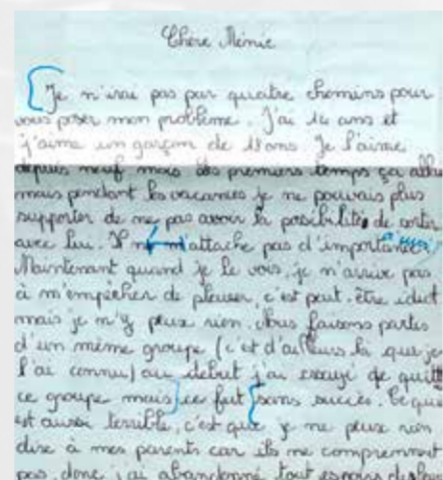 Chère Ménie
Je n'irai pas par quatre chemins pour
vous poser mon problème. J'ai 14 ans et
j'aime un garçon de 18 ans Je l'aime
depuis neuf mois les premiers temps ça
mais pendant les vacances je ne pouvais plus
supporter de ne pas avoir la possibilité de sortir
avec lui. Il m'attache pas d'importance
Maintenant quand je le vois, je n'arrive pas
à m'empêcher de pleurer, c'est peut-être idiot
mais je m'y peux rien. Nous faisons parties
d'un même groupe (c'et d'ailleurs là que je
l'ai connu) au début j'ai essayé de
ce groupe mais ce fut sans succès. Ce qui
est aussi terrible, c'est que je ne peux rien
dire à mes parents car ils me comprennent
pas, donc j'ai abandonné tout espoirs